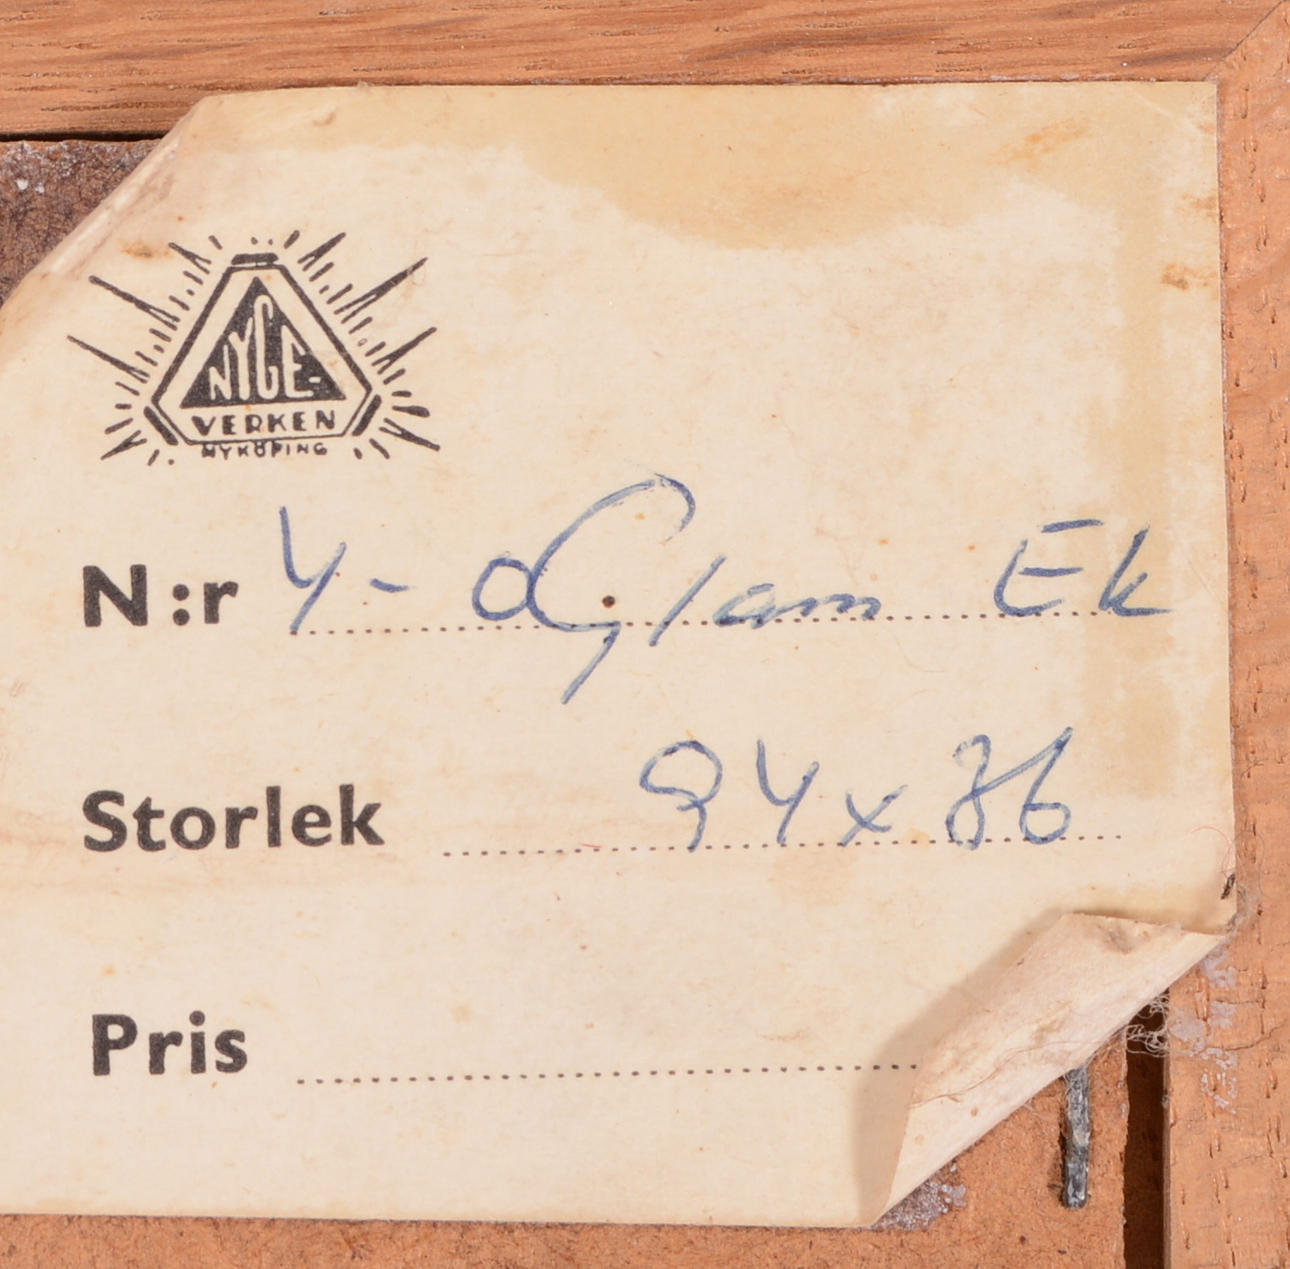 NYGE-
VERKEN
NYKÖPING
N:r 4 - lam Ek
Storlek 94 x
Pris